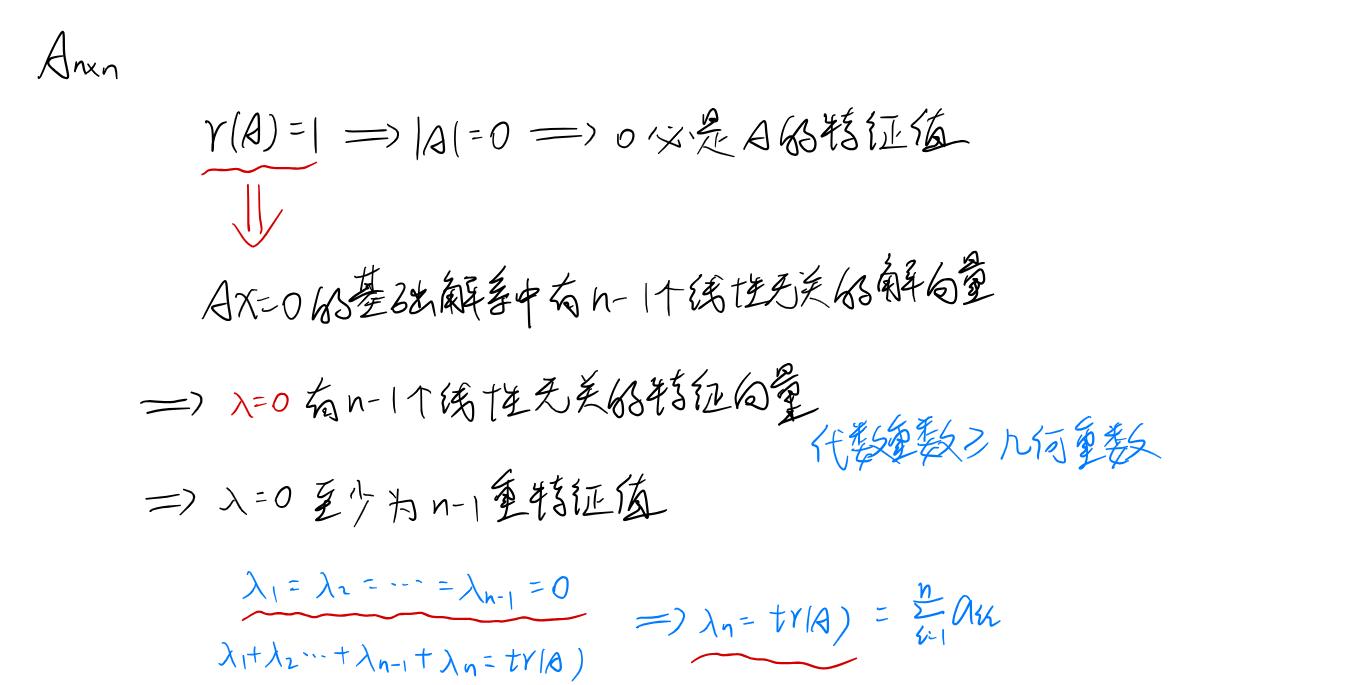 Aₙₓₙ
r(A)=1 ⟹ |A|=0 ⟹ 0必是A的特征值
⇓
AX=0的基础解系中有n-1个线性无关的解向量
⟹ λ=0 有n-1个线性无关的特征向量
代数重数≥几何重数
⟹ λ=0 至少为n-1重特征值
λ₁=λ₂=⋯=λₙ₋₁=0
λ₁+λ₂⋯+λₙ₋₁+λₙ=tr(A)
⟹ λₙ=tr(A) = ∑ⁿᵢ₌₁ aᵢᵢ